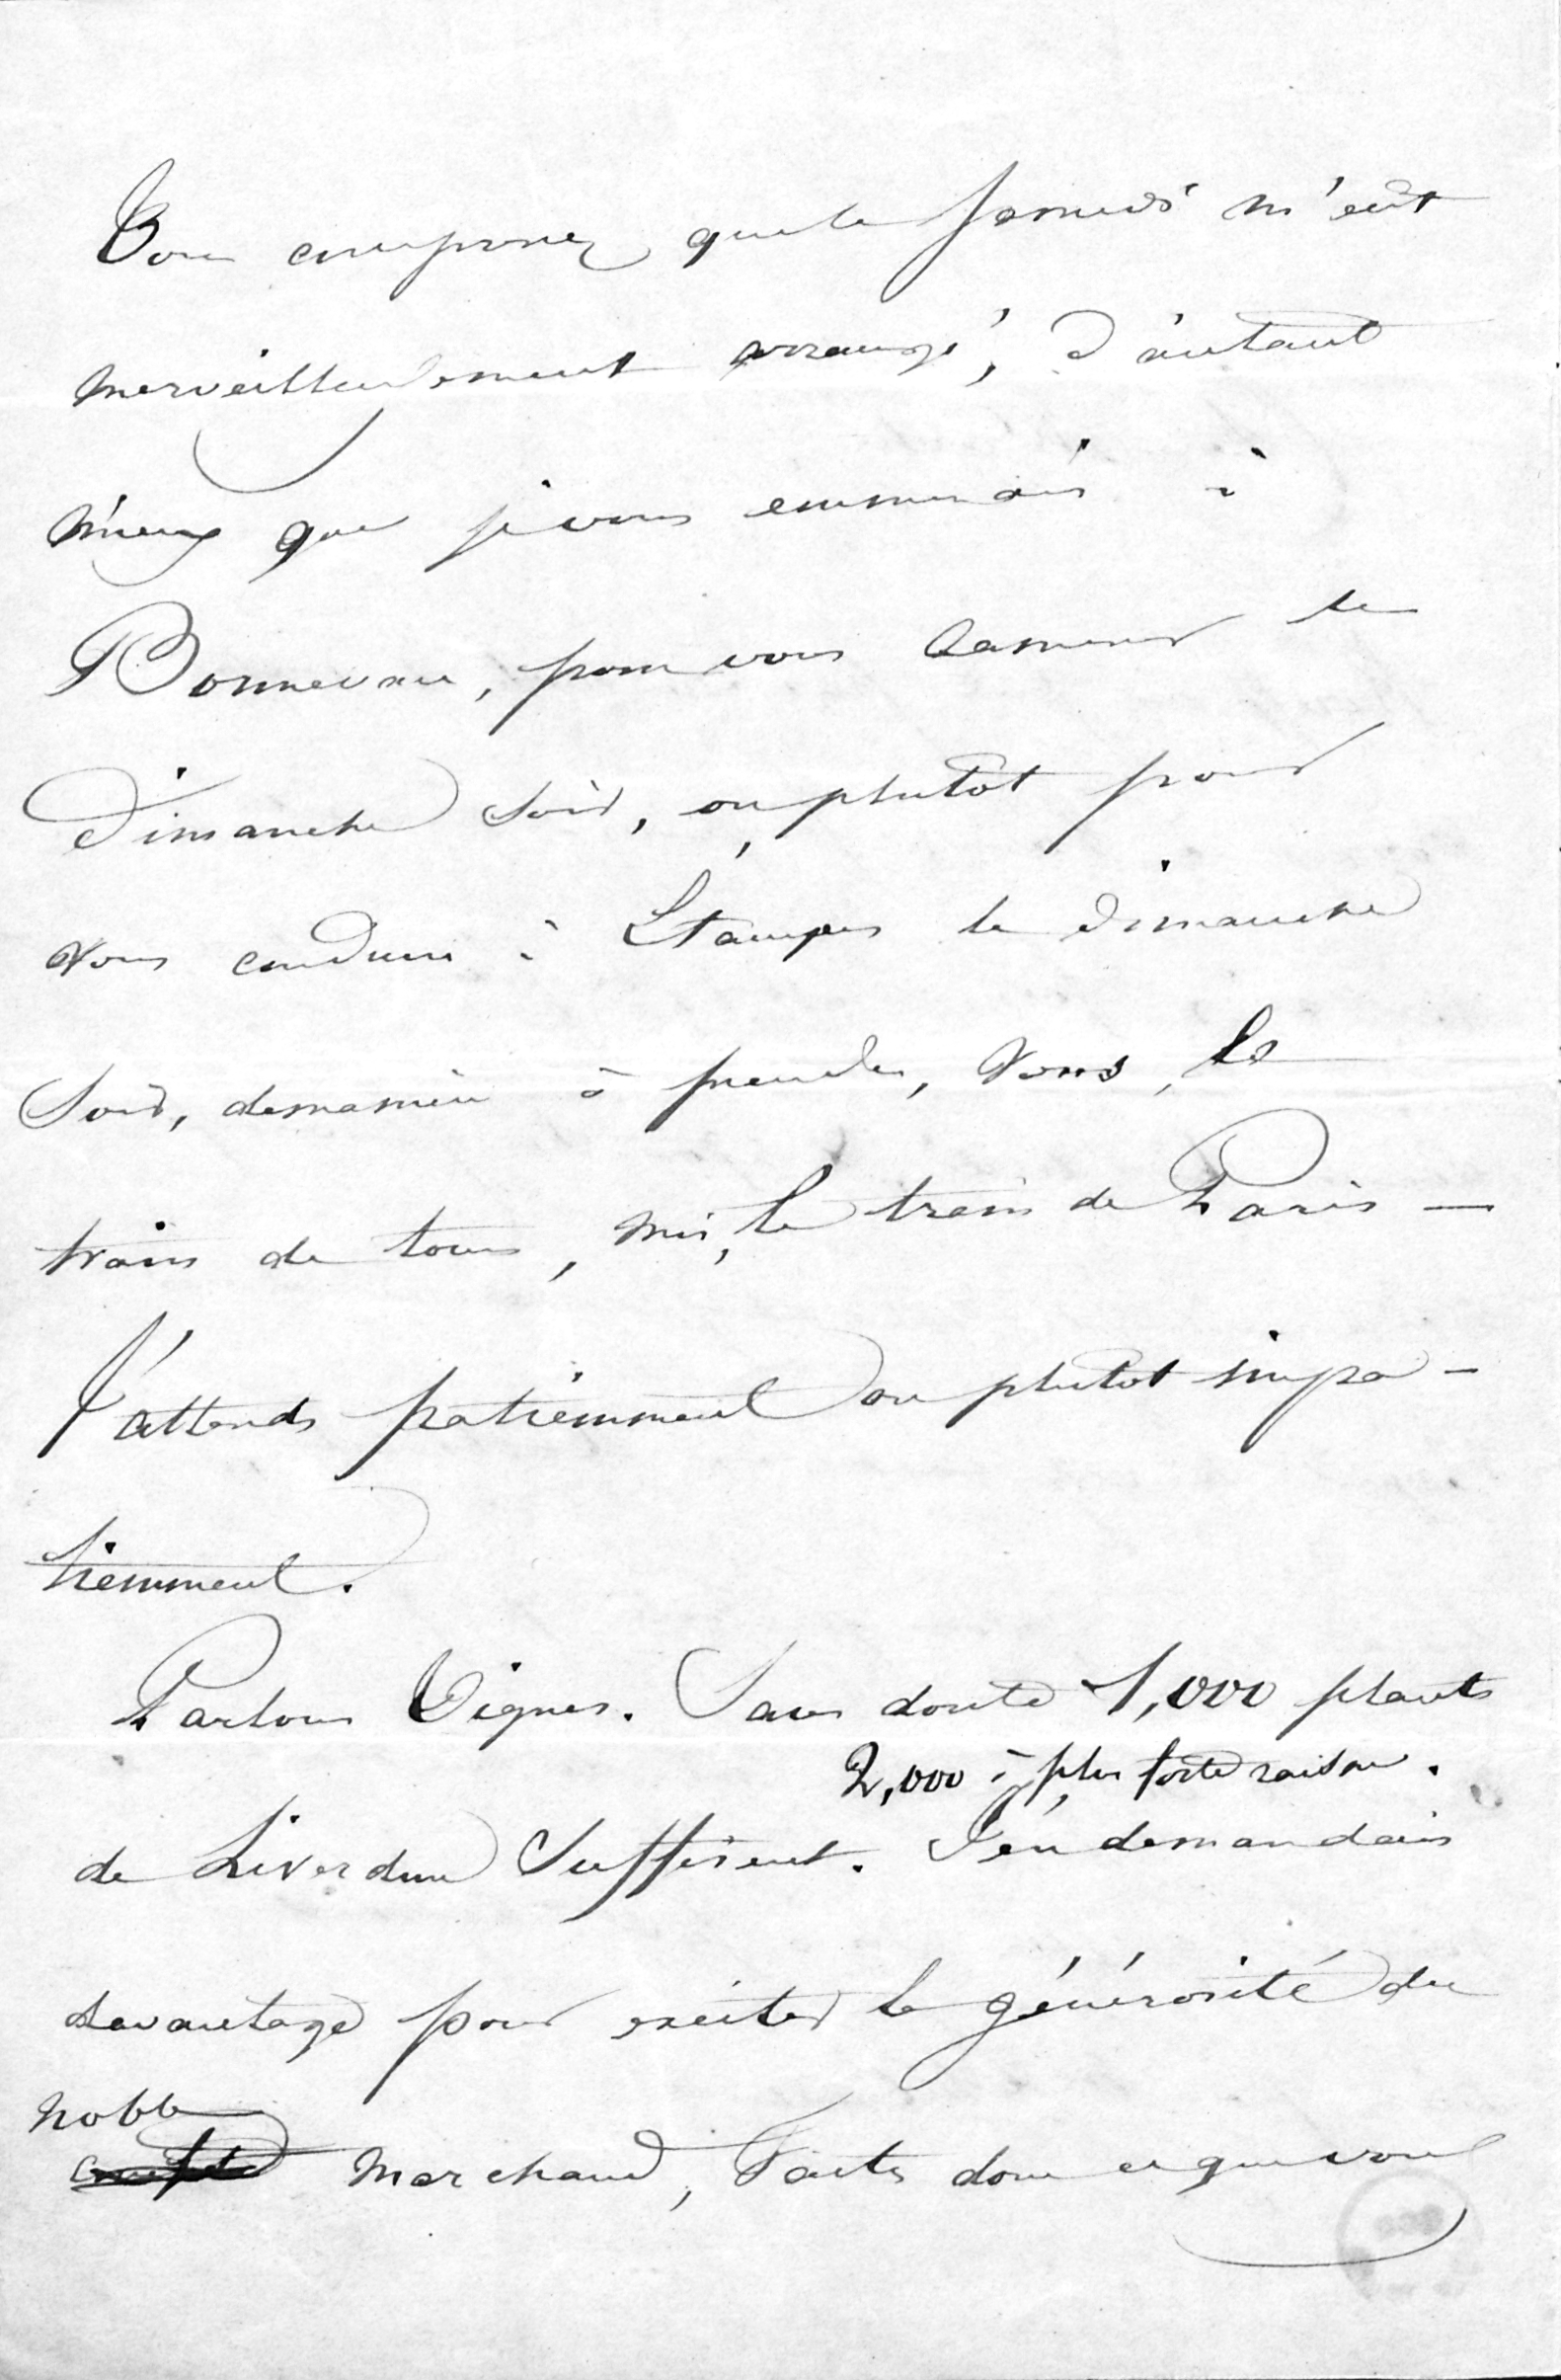 Vous comprenez que le samedi m'eût
merveilleusement arrangé, d'autant
mieux que je vous emmenais à
Bonnevau, pour vous ramener le
Dimanche soir, ou plutôt pour
vous conduire à Étampes le Dimanche
soir, de manière à prendre, vous, le
train de tours, moi, le train de Paris —
J'attends patiemment ou plutôt impa-
tiemment.
Parlons Vignes. Sans doute 1,000 plants
2,000 à plus forte raison.
de Liverdun suffisent. J'en demandais
davantage pour exciter la générosité du
noble
marchand, Faites donc ce que vous